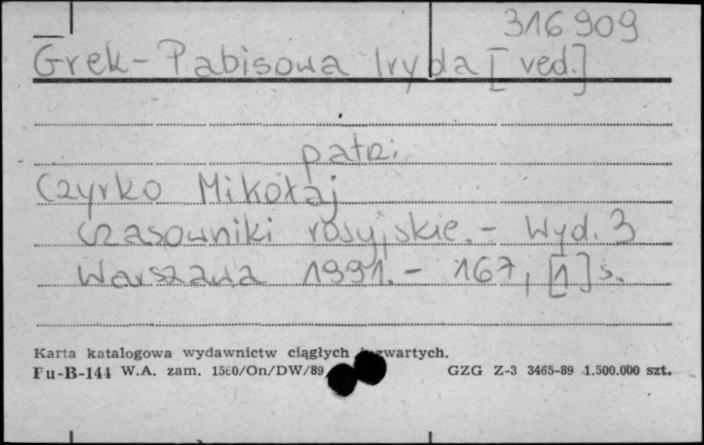 316909
Grek-Pabisowa Iryda [red.]
patrz:
Czyrko Mikołaj
Czasowniki rosyjskie.- Wyd. 3
Warszawa 1991.- 167, [1] s.
Karta katalogowa wydawnictw ciągłych i zwartych.
Fu-B-144 W.A. zam. 1560/On/DW/89 GZG Z-3 3465-89 1.500.000 szt.